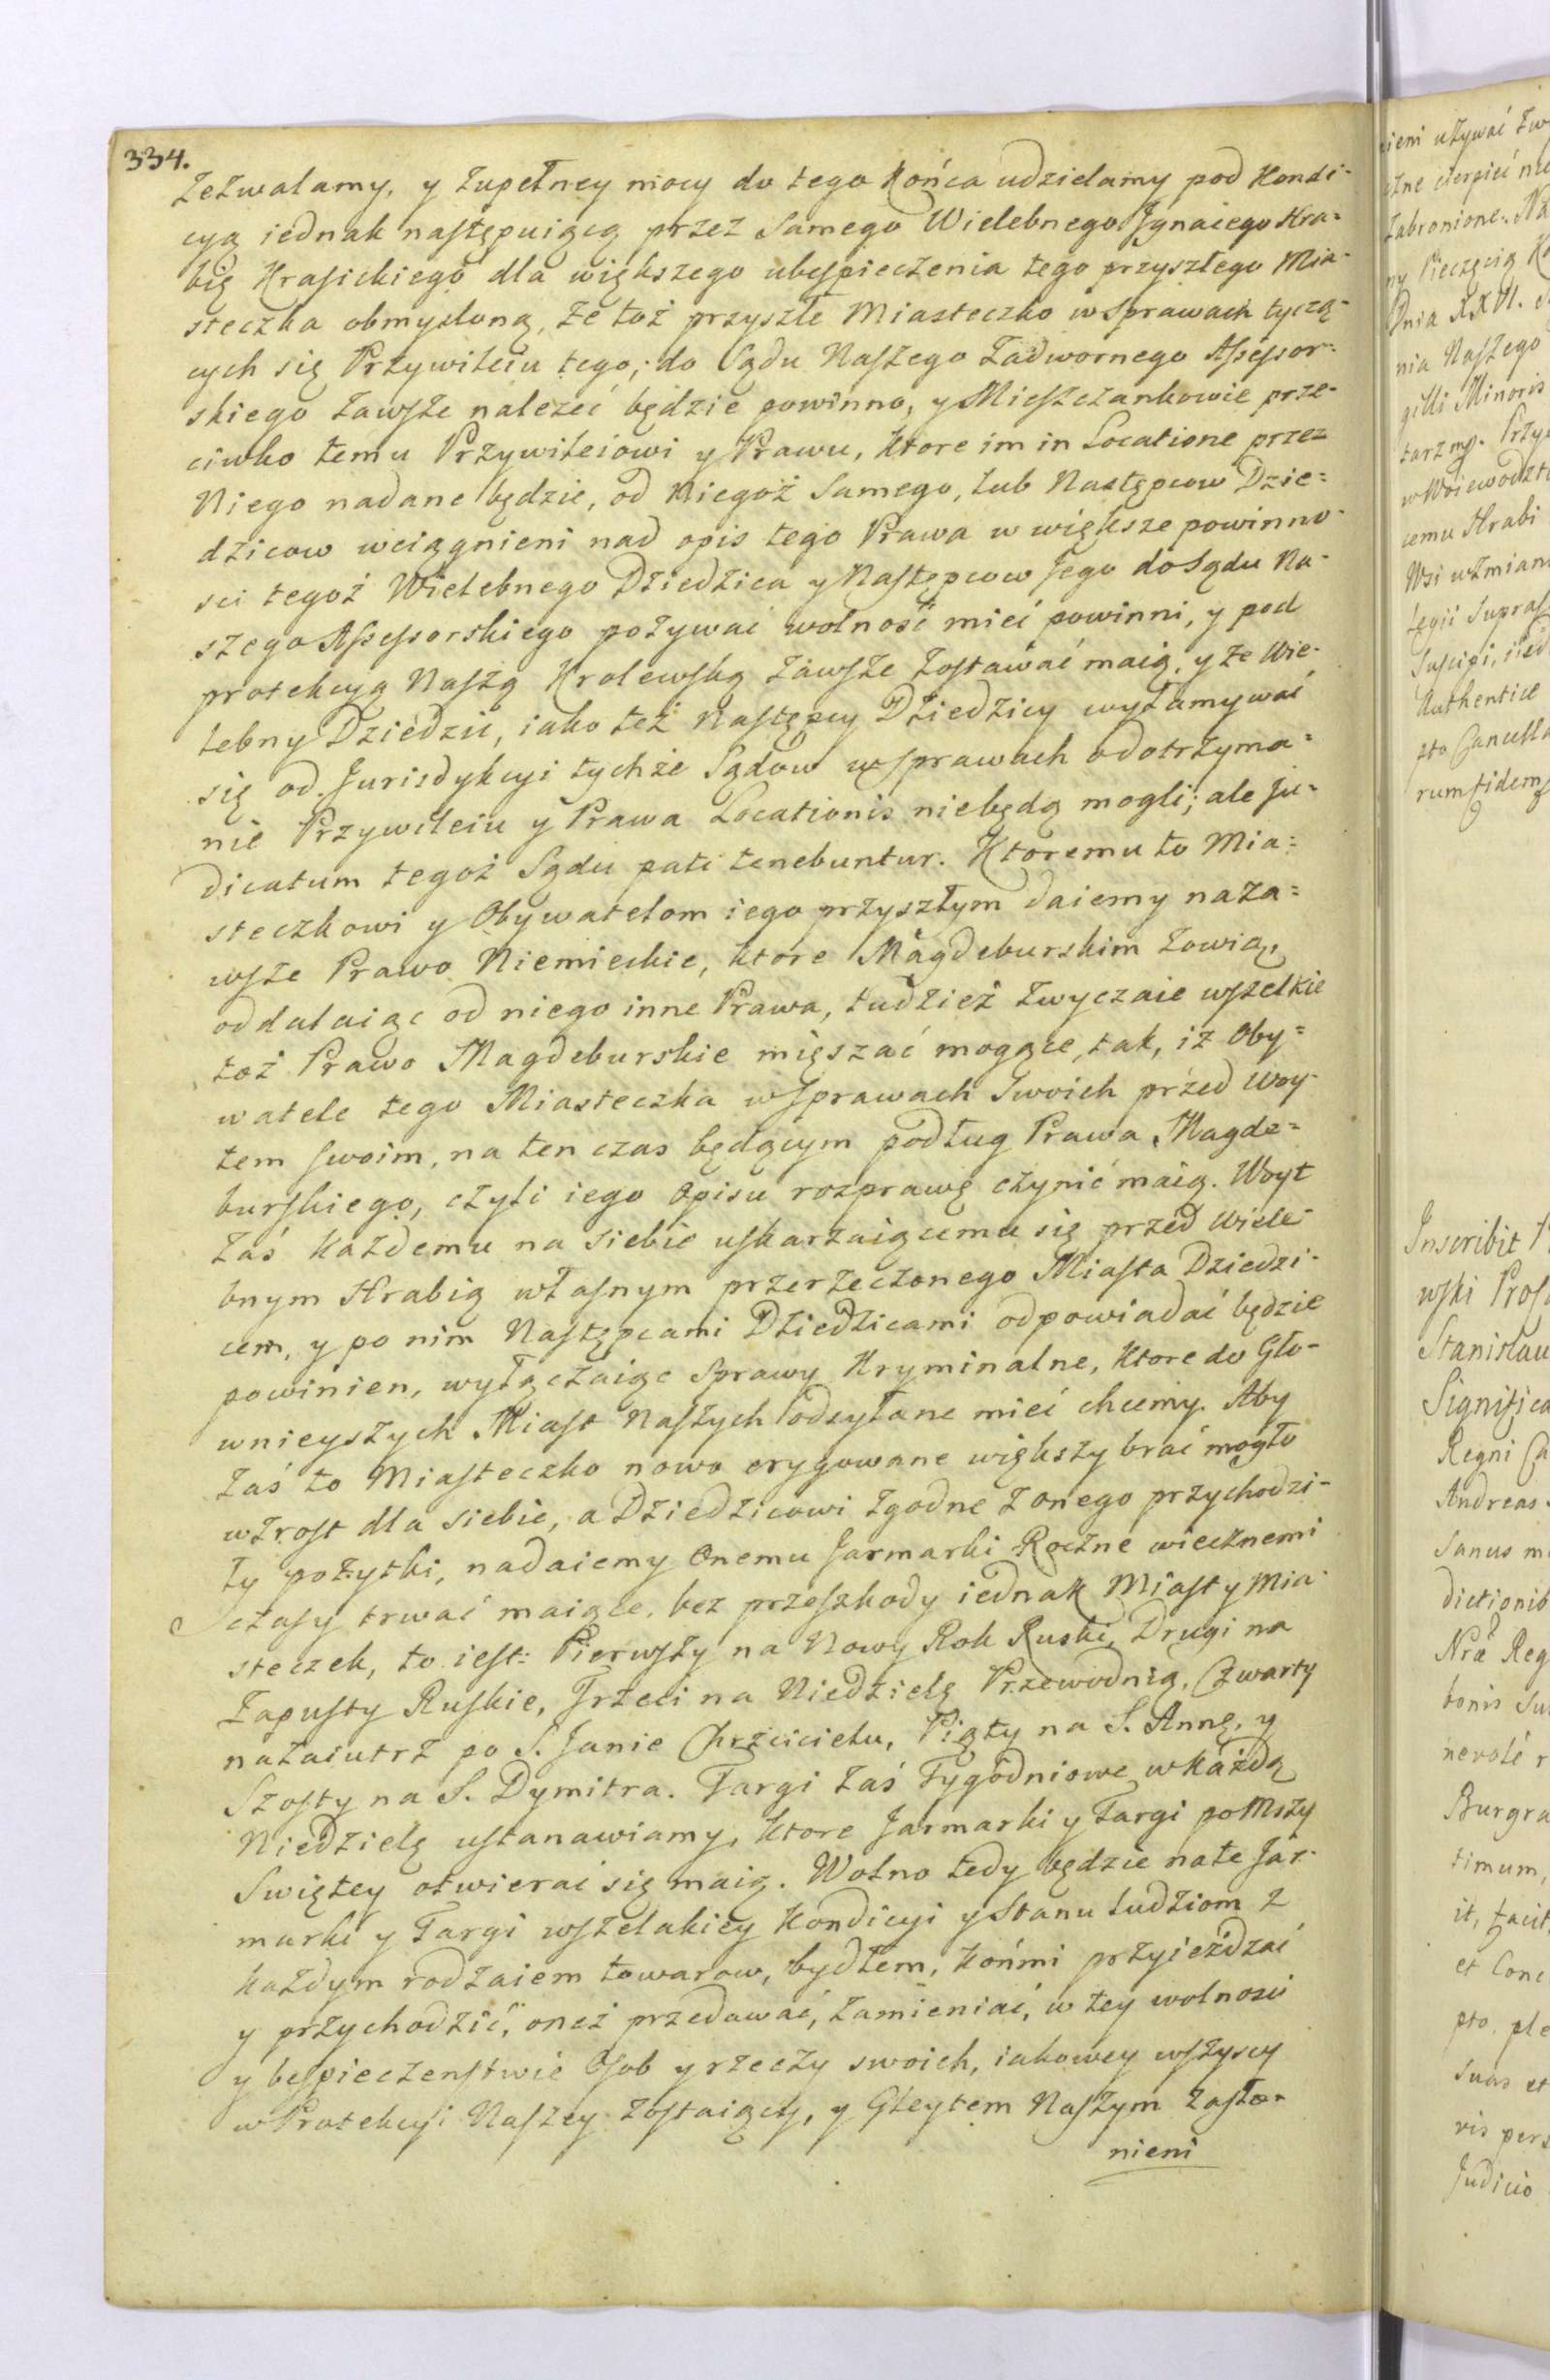 334.
Zezwalamy, y zupełney mocy do tego końca udzielamy pod Kondi-
cyą iednak następuiącą przez Samego Wielebnego Jgnacego Hra=
bię Krasickiego dla większego ubespieczenia tego przyszłego Mia-
steczka obmysloną, że toż przyszłe Miasteczko w Sprawach tyczą-
cych się Przywileiu tego, do Sądu Naszego Zadwornego Assessor-
skiego zawsze nalezeć będzie powinno, y Mieszczankowie prze-
ciwko temu Przywileiowi y Prawu, ktore im in Locatione przez
Niego nadane będzie, od Niegoż Samego, lub Następcow Dzie=
dzicow wciągnieni nad opis tego Prawa w większe powinno-
sci tegoż Wielebnego Dziedzica y Następcow Jego do Sądu Na-
szego Assessorskiego pozywać wolność mieć powinni, y pod
protekcyą Naszą Krolewską zawsze zostawać maią, y że Wie-
lebny Dziedzic, iako też Następcy Dziedzicy wyłamywać
się od Jurisdykcyi tychże Sądow w sprawach o dotrzyma=
nie Przywileiu y Prawa Locationis niebędą mogli; ale Ju-
dicatum tegoż Sądu pati tenebuntur. Ktoremu to Mia=
steczkowi y Obywatelom iego przyszłym daiemy na za=
wsze Prawo Niemieckie, ktore Magdeburskim zowią,
oddalaiąc od niego inne Prawa, tudzież zwyczaie wszelkie
toż Prawo Magdeburskie mięszać mogące, tak, iż Oby=
watele tego Miasteczka w Sprawach Swoich przed Woy-
tem swoim, na ten czas będącym podług Prawa Magde=
burskiego, czyli iego Opisu rozprawę czynić maią. Woyt
zaś każdemu na siebie uskarzaiącemu się przed Wiele-
bnym Hrabią własnym przerzeczonego Miasta Dziedzi-
cem, y po nim Następcami Dziedzicami odpowiadać będzie
powinien, wyłączaiąc Sprawy Kryminalne, ktore do Gło-
wnieyszych Miast Naszych odsyłane mieć chcemy. Aby
zaś to Miasteczko nowo erygowane większy brać mogło
wzrost dla siebie, a Dziedzicowi zgodne z onego przychodzi-
ły pożytki, nadaiemy Onemu Jarmarki Roczne wiecznemi
czasy trwać maiące, bez przeszkody iednak Miast y Mia-
steczek, to iest: Pierwszy na Nowy Rok Ruski, Drugi na
Zapusty Ruskie, Trzeci na Niedzielę Przewodnią, Czwarty
nazaiutrz po S. Janie Chrzcicielu, Piąty na S. Annę, y
Szosty na S. Dymitra. Targi zaś Tygodniowe w każdą
Niedzielę ustanawiamy, ktore Jarmarki y Targi po Mszy
Swiętey otwierać się maią. Wolno tedy będzie na te Jar-
marki y Targi wszelakiey Kondicyi y Stanu ludziom z
każdym rodzaiem towarow, bydłem, końmi przyieżdzać
y przychodzić, oneż przedawać, zamieniać, w tey wolności
y bespieczenstwie Osob y rzeczy swoich, iakowey wszyscy
w Protekcyi Naszey zostaiący, y Gleytem Naszym zasło-
nieni